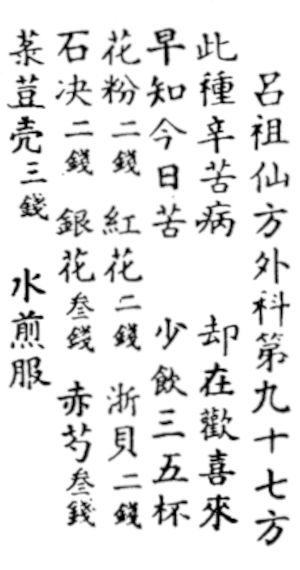 呂祖仙方外科第九十七方
此種辛苦病 却在歡喜來
早知今日苦 少飲三五杯
花粉二錢 紅花二錢 浙貝二錢
石决二錢 銀花叁錢 赤芍叁錢
菉荳壳三錢 水煎服